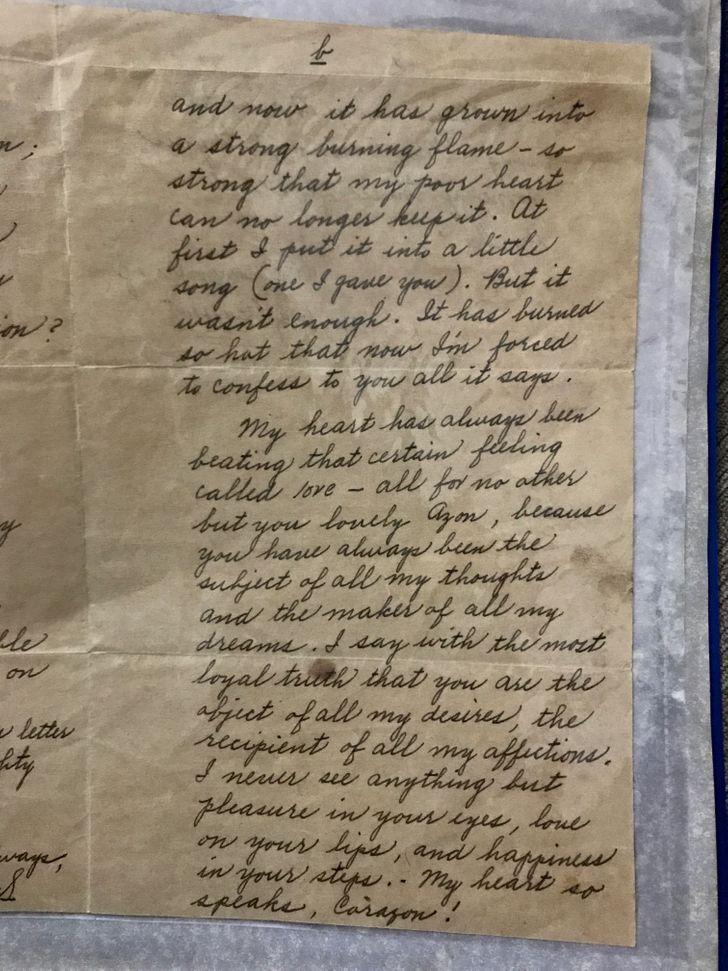 b
and now it has grown into
a strong burning flame - so
strong that my poor heart
can no longer keep it. At
first I put it into a little
song (one I gave you). But it
wasn't enough. It has burned
so hot that now I'm forced
to confess to you all it says.
My heart has always been
beating that certain feeling
called love - all for no other
but you lovely Azon, because
you have always been the
subject of all my thoughts
and the maker of all my
dreams. I say with the most
loyal truth that you are the
object of all my desires, the
recipient of all my affections.
I never see anything but
pleasure in your eyes, love
on your lips, and happiness
in your steps. - My heart so
speaks, Corazon!
on
letter